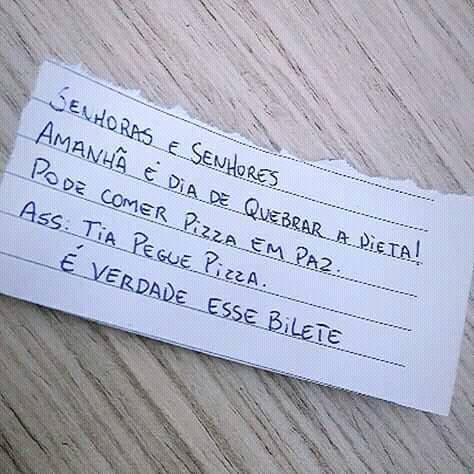 SENHORAS E SENHORES
AMANHÃ É DIA DE QUEBRAR A DIETA!
PODE COMER PIZZA EM PAZ.
ASS: TIA PEGUE PIZZA.
É VERDADE ESSE BILETE